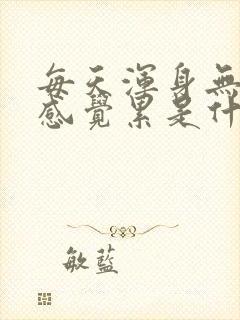 每天渾身無
感覺累是什
敏藍